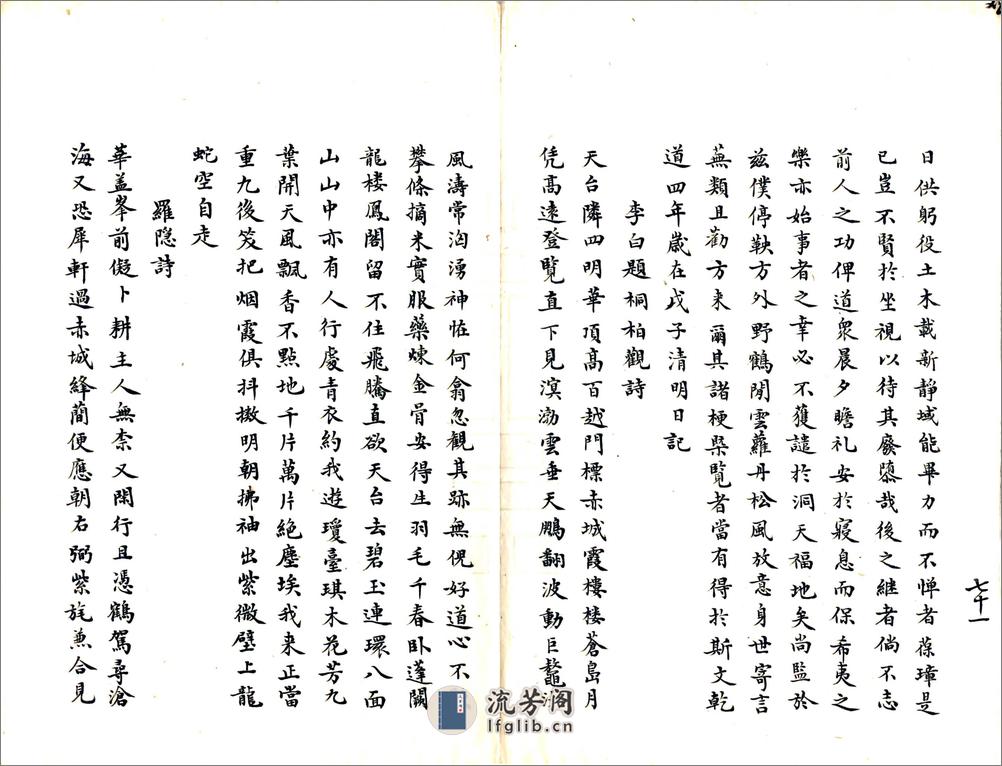 日供躬役土木載新靜域能畢力而不憚者葆璋是
已豈不賢於坐視以待其廢隳哉後之継者倘不志
前人之功俾道衆晨夕瞻礼安於寢息而保希夷之
樂亦始事者之幸必不獲譴於洞天福地矣尚監於
兹僕停鞅方外野鶴閒雲蘿丹松風放意身世寄言
蕪類且勸方来爾其諸梗槩覽者當有得於斯文乾
道四年歲在戊子清明日記
李白題桐柏觀詩
天台隣四明華頂高百越門標赤城霞樓棲蒼島月
凭高遠登覽直下見溟渤雲垂天鵬翻波動巨鼇
風濤常洶湧神怪何翕忽観其跡無倪好道心不
攀條摘朱實服藥煉金骨安得生羽毛千春卧蓬闕
龍楼鳳閣留不住飛騰直欲天台去碧玉連環八面
山山中亦有人行處青衣約我遊瓊臺琪木花芳九
葉開天風飄香不點地千片萬片絶塵埃我来正當
重九後笑把烟霞俱抖擻明朝拂袖出紫微壁上龍
蛇空自走
羅隐詩
華盖峯前儗卜耕主人無柰又閑行且憑鶴駕尋滄
海又恐犀軒過赤城絳蕳便應朝右弼紫旄兼合見
七十一
流芳阁
lfglib.cn